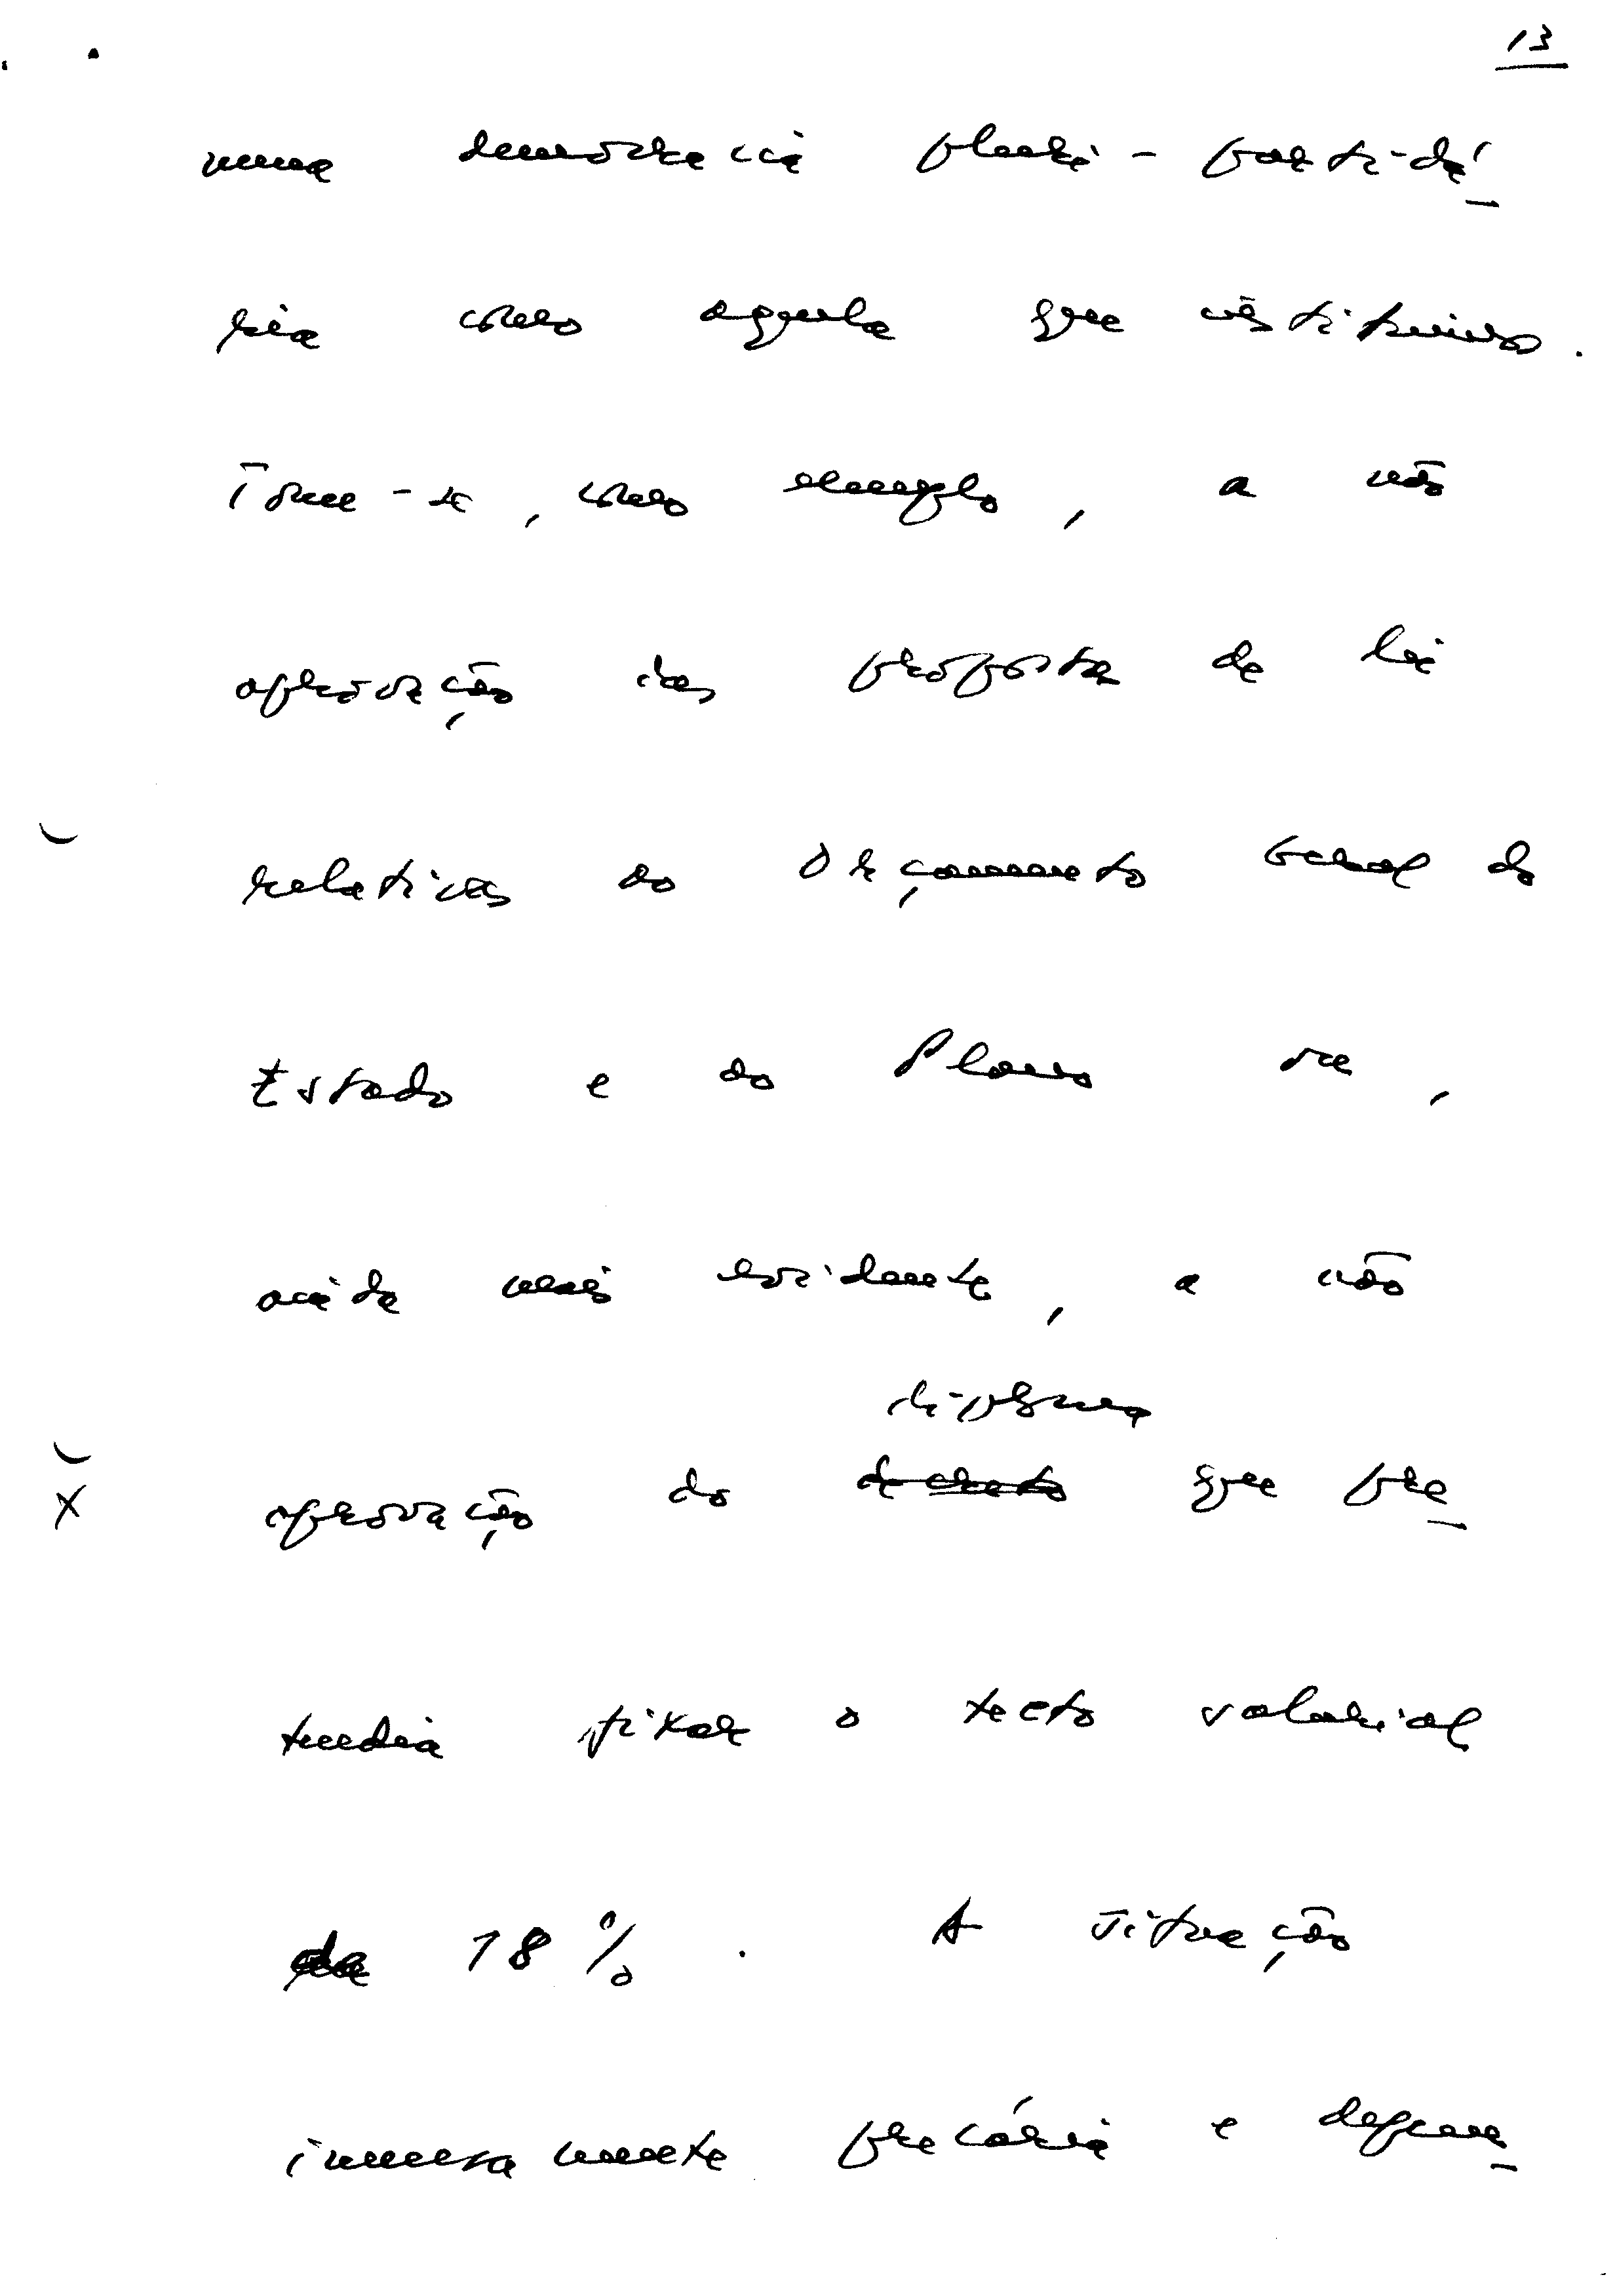 13
numa democracia pluri-partidá
ria como aquela que instituimos.
Tome-se, como exemplo, a não
aprovação das proposta de lei
relativas ao Orçamento Geral do
Estado e ao Plano ou,
ainda mais evidente, a não
diploma
aprovação do decreto que pre
tendia fixar o tecto salarial
de 18%. A situação
imensamente precária e